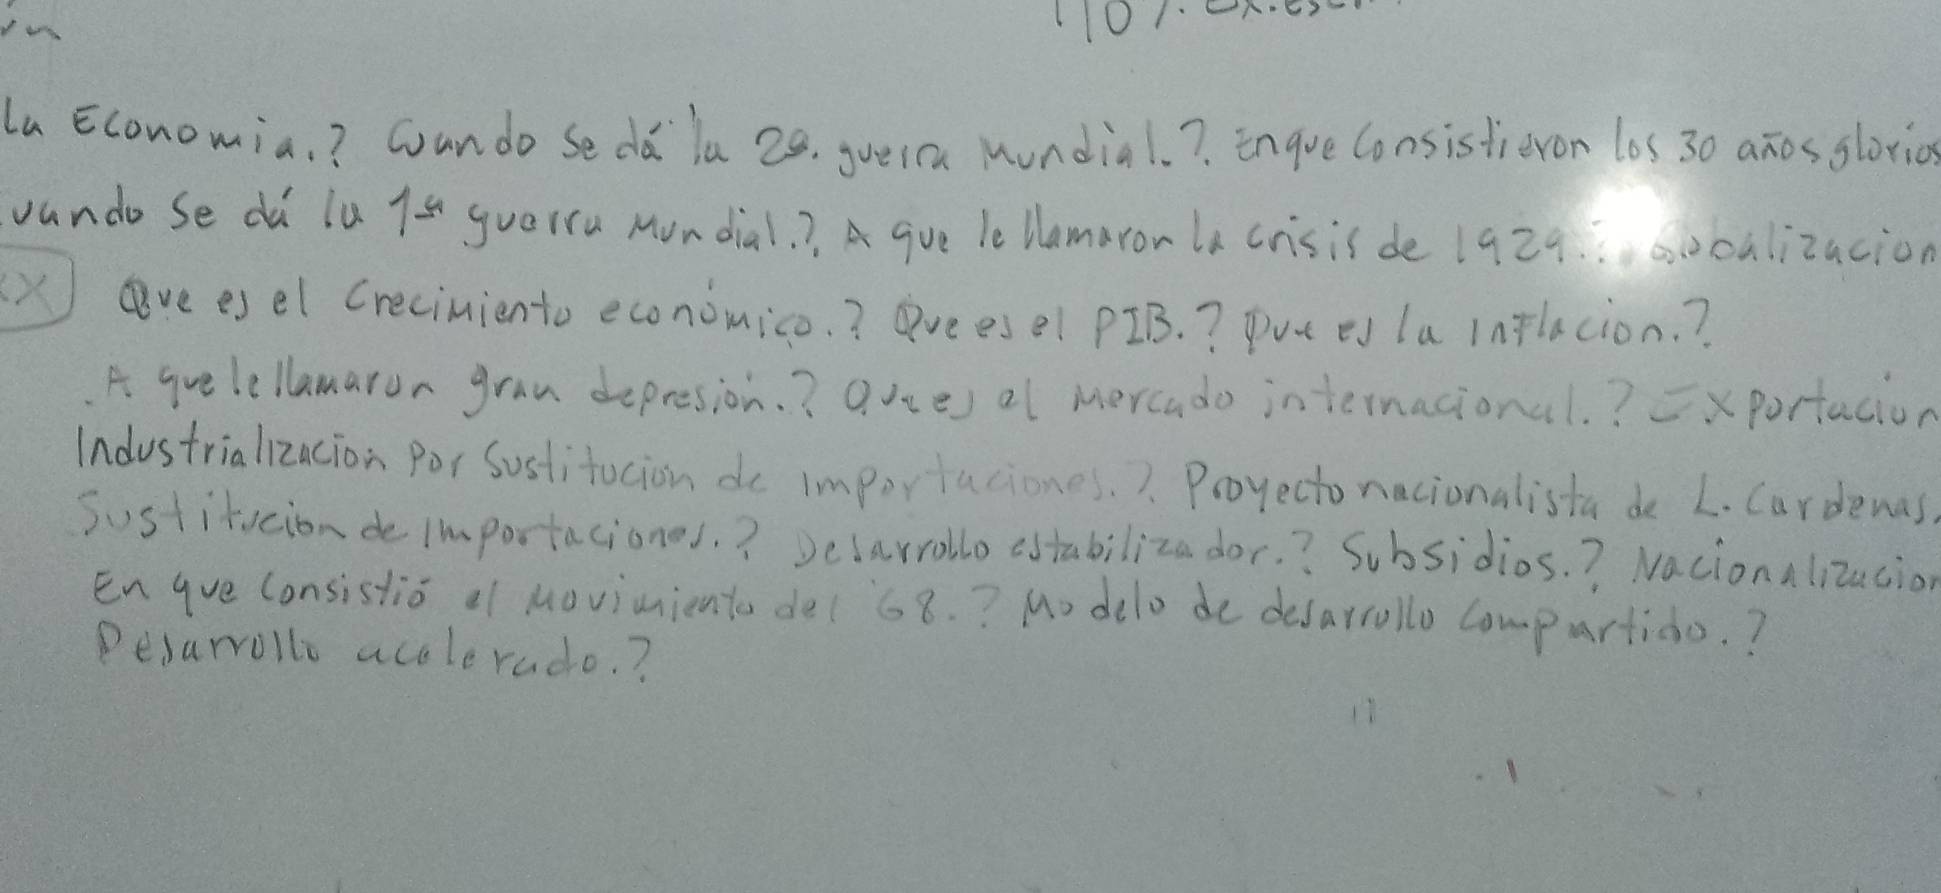 110%. Ex.es
La Economia.? Cuando se dá la 2a. guerra Mundial.? En que Consistieron los 30 años glorios
uando se dá la 1a guerra Mundial.? A que le llamaron la crisis de 1929.? Globalizacion
XX Que es el Crecimiento económico.? Que es el PIB.? Que es la inflacion.?
A que le llamaron gran depresión.? Que es el Mercado internacional.? Exportacion
Industrialización por Sustitucion de importaciones.? Proyecto nacionalista de L. Cardenas.
Sustitución de Importaciones.? Desarrollo estabilizador.? Subsidios.? Nacionalizacion
En que Consistió el Movimiento del 68.? Modelo de desarrollo Compartido.?
Desarrollo acelerado.?